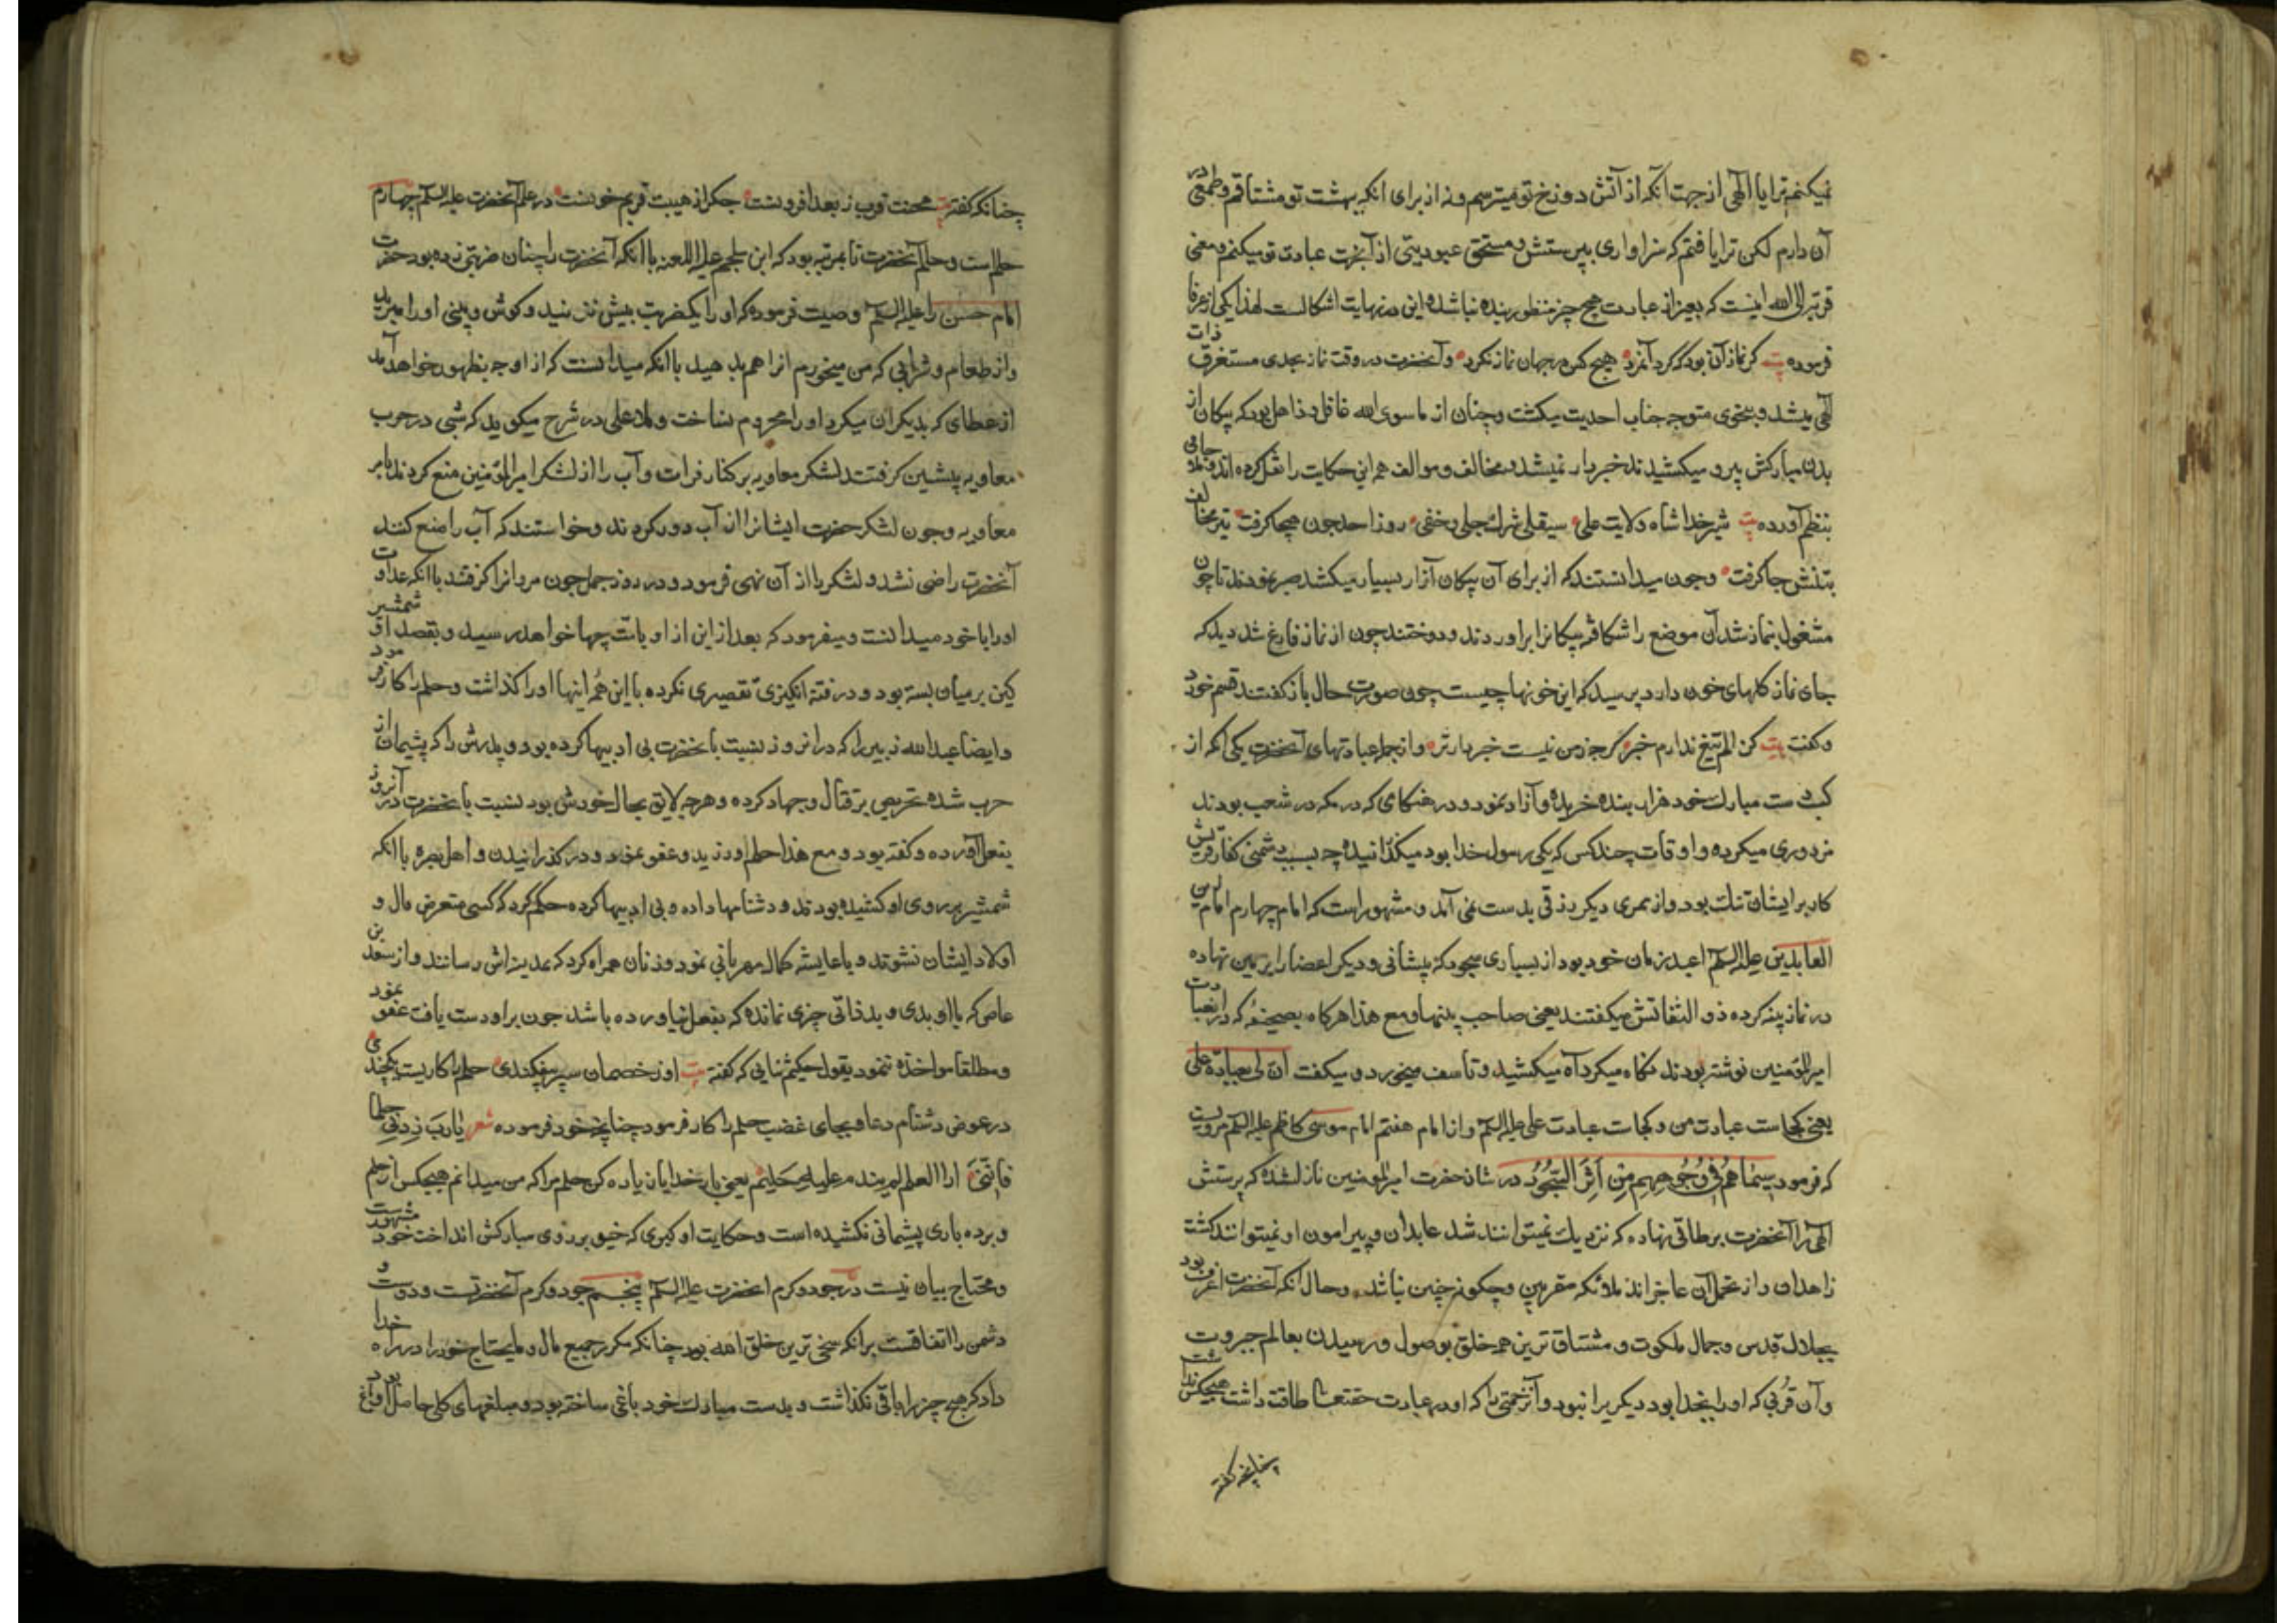 نمیکنم ترا یا الهی از جهت آنکه از آتش دوزخ تو میترسم و نه از برای آنکه بهشت تو مشتاقم و طمعی در
آن دارم لکن ترا یافتم که سزاواری بپرستش و مستحق عبودیتی از آنجهت عبادت تو میکنم و معنی
قربة الی الله اینست که بغیر از عبادت هیچ چیز منظور بنده نباشد و این در نهایت اشکالست لهذا یکی از عرفا
فرموده بیت کر نماز آن بود که کرد آنمرد هیچ کس در جهان نماز نکرد و آنحضرت در وقت نماز بحدی مستغرق ذات
الهی میشد و بنحوی متوجه جناب احدیت میکشت و چنان از ما سوی الله غافل و ذاهل بود که پیکان از
بدن مبارکش بیرو میکشیدند خبردار نمیشد و مخالف و موالف هم این حکایت را نقل کرده اند و ملا جامی
بنظم آورده بیت شیر خدا شاه ولایت علی صیقلی شرک جلی و خفی روز احد چون هیجا کرفت تیر مخالف
بتنش جا کرفت و چون میدانستند که از برای آن پیکان آزار بسیار میکشد صبر نمودند تا چون
مشغول بنماز شد آن موضع را شکافته پیکانرا براوردند و دوختند چون از نماز فارغ شد دید که
جای نماز کلهای خون دارد پرسید که این خونها چیست چون صورت حال باز کفتند قسم خورد
و کفت بیت کز الم تیغ ندارم خبر کرچه ز من نیست خبردارتر و از جمله عبادتهای آنحضرت یکی آنکه از
کسب دست مبارک خود هزار بنده خریده و آزاد نمود و در هنکامی که در مکه در شعب بودند
مزدوری میکرده و اوقات چند کس که یکی رسول خدا بود میکذرانیده چه بسبب دشمنی کفار قریش
کار بر ایشان تنک بود و از ممری دیکر رزقی بدست نمی آمد و مشهور است که امام چهارم امام زین
العابدین علیه السلم اعبد زمان خود بود از بسیاری سجود که پیشانی و دیکر اعضا را بر زمین نهاده
در نماز پینه کرده ذو الثفناتش میکفتند یعنی صاحب پینها و مع هذا هرکاه بصحیفهٔ که در آن عبادت
امیر المؤمنین نوشته بودند نکاه میکرد آه میکشید و تاسف میخورد و میکفت انی لی بعبادة علی
یعنی کجاست عبادت من و کجاست عبادت علی علیه السلم و از امام هفتم امام موسی کاظم علیه السلم مرویست
که فرمود سیماهم فی وجوههم من اثر السجود در شان حضرت امیر المومنین نازل شده که پرستش
الهی را آنحضرت بر طاقی نهاده که نزدیک نمیتوانند شد عابدان و پیرامون او نمیتوانند کشت
زاهدان و از تحمل آن عاجزاند ملائکه مقربین و چکونه چنین نباشد و حال آنکه آنحضرت اعرف بود
بجلال قدس و جمال ملکوت و مشتاق ترین همه خلق بوصول و رسیدن بعالم جبروت
و آن قربی که او را بخدا بود دیکریرا نبود و آنزحمتی را که او در عبادت حقتعالی طاقت داشت هیچکس نداشت
چنانچه کفته
چنانکه کفته بیت محنت قرب ز بعد افزونست جکر از هیبت قربم خونست در علم آنحضرت علیه السلم چهارم
حلم است و حلم آنحضرت تا بمرتبه بود که ابن ملجم علیه اللعنه با آنکه آنحضرت را چنان ضربتی زده بود حضرت
امام حسن را علیه السلم وصیت فرموده که او را یکضربت بیش نزنید و کوش و بینی او را مبرید
و از طعام و شرابی که من میخورم او را هم بدهید با آنکه میدانست که از او چه بظهور خواهد آمد
از عطای که بدیکران میکرد او را محروم نساخت و ملا علی در شرح میکوید که شبی در حرب
معاویه پیشین کرفتند لشکر معاویه بر کنار فرات و آب را از لشکر امیر المؤمنین منع کردند بامر
معاویه و چون لشکر حضرت ایشانرا از آب دور کردند و خواستند که آب را منع کنند
آنحضرت راضی نشد و لشکر را از آن نهی فرمود و در روز جمل چون مروانرا کرفتند با آنکه عداوت
او را با خود میدانست و میفرمود که بعد از این از او بامت چها خواهد رسید و بقصد او شمشیر
کین بر میان بسته بود و در فتنه انکیزی تقصیری نکرده با این همه اینها او را کذاشت و حلم را کار فرمود
و ایضا عبدالله زبیر را که در آنروز نسبت بآنحضرت بی ادبیها کرده بود و پدرش را که پشیمان از
حرب شده تحریص بر قتال و جهاد کرده و هرچه لایق بحال خودش بود نسبت بآنحضرت در آنروز
بفعل آورده و کفته بود و مع هذا حلم ورزید و عفو نمود و در کذرانیدن و اهل بصره با آنکه
شمشیر بر روی او کشیده بودند و دشنامها داده و بی ادبیها کرده حکم کرد که کسی متعرض مال و
اولاد ایشان نشوند و با عایشه کمال مهربانی نمود و زنان همراه کرد که بمدینه اش رسانند و از سعد بن
عاص که با او بدی و بد ذاتی چیزی نمانده که بفعل نیاورده باشد چون بر او دست یافت عفو نمود
و مطلقا مواخذه ننمود بقول حکیم ثنایی که کفته بیت او ز خصمان سپر نیفکندی حلم را کار بست یکچندی
در عوض دشنام دعا و بجای غضب حلم را کار فرمود چنانچه خود فرموده شعر یارب زدنی حلما
فاننی اری العلم لم یندم علیه حلیم یعنی بار خدایا زیاده کن حلم مرا که من میدانم هیچکس از حلم
و برده باری پشیمانی نکشیده است و حکایت او کبری که خیو بر روی مبارکش انداخت خود مشهور است
و محتاج بیان نیست در جود و کرم انحضرت علیه السلم پنجم جود و کرم آنحضرتست و دوست و
دشمن را اتفاقست برانکه سخی ترین خلق الله بود چنانکه مکرر جمیع مال و مایحتاج خود را در راه خدا
داد که هیچ چیز را باقی نکذاشت و بدست مبارک خود باغی ساخته بود و مبلغهای کلی حاصل آن باغ